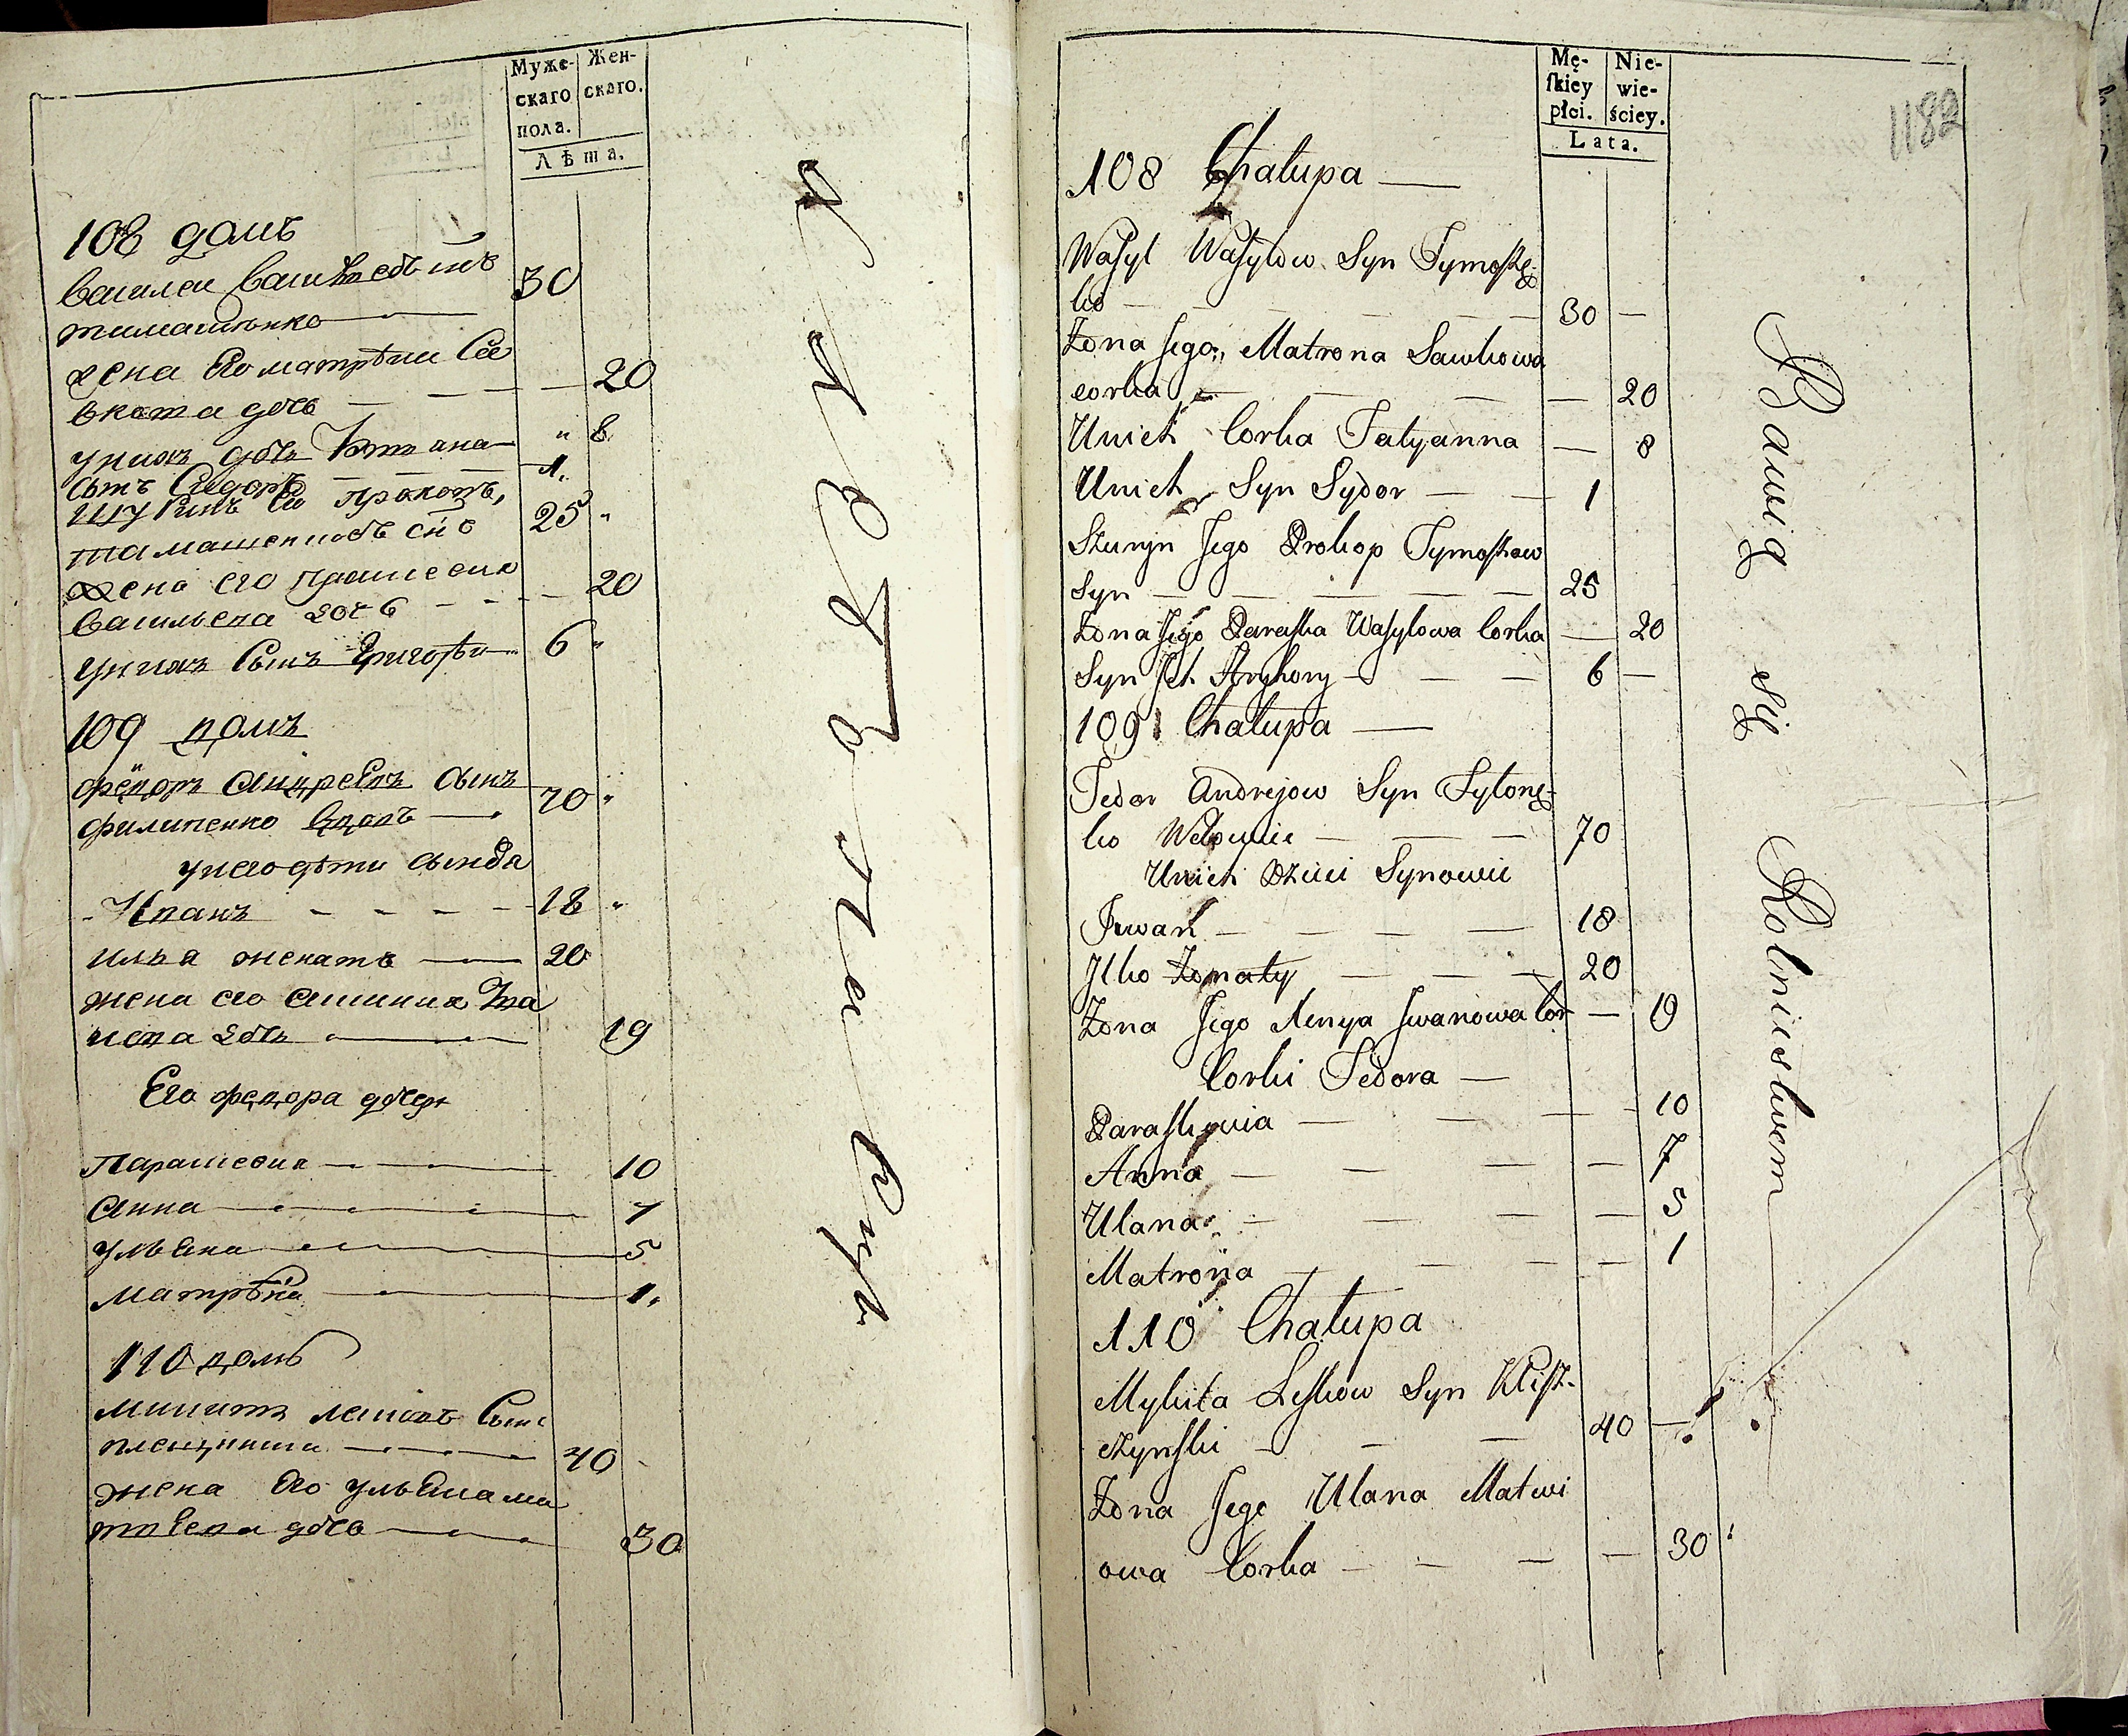 Муже-
скаго
пола.
Жен-
скаго.
Лѣта.
108 домъ
василеи
тимашенко 30
жена Его матрѣни Са
вкова дочь 20
унихъ дочь Татиана " 8
сынъ Сидоръ 1.
Шуринъ Его прокопъ,
тамашенковъ снъ 25 "
жена его Прашсевия
васильева дочь 20
унихъ Сынъ Григорѣи 6 "
109 домъ
фёдоръ андреевъ сынъ
филипенко вдовъ 70 "
унего дѣти сынова
Иванъ 18 "
илья женатъ 20
жена его Ива
нова дочь 19
Его федора дочери
Парашсевия 10
анна 7
ульяна 5
матрѣна 1.
110 домъ
микита лсковъ Сынъ
40
жена Его ульяна ма
твеева дочь 30
Mę-
ſkiey
płci.
Nie-
wie-
ściey.
Lata.
1182
108 Chałupa
Wasyl Wasylow Syn Tymoszę-
ko 30
Żona Jego Matrona Sawkowa
corka 20
Unich Corka Tatyanna 8
Unich Syn Sydor 1
Szuryn Jego Prokop Tymoszow
Syn 25
Żona Jego Paraska Wasylowa Corka 20
Syn Ich Hryhory 6
109 Chałupa
Fedor Andrejow Syn Fylonę-
ko Wdowiec 70
Unich Dzieci Synowie
Iwan 18
Ilko Żonaty 20
Żona Jego Iwanowa Cor 19
Corki Fedora
Paraskowia 10
Anna 7
Ulana 5
Matrona 1
110 Chałupa
Mykita Leskow Syn Klisz-
czynski 40
Żona Jego Ulana Matwi
owa Corka 30
Bawią się Rolnictwem